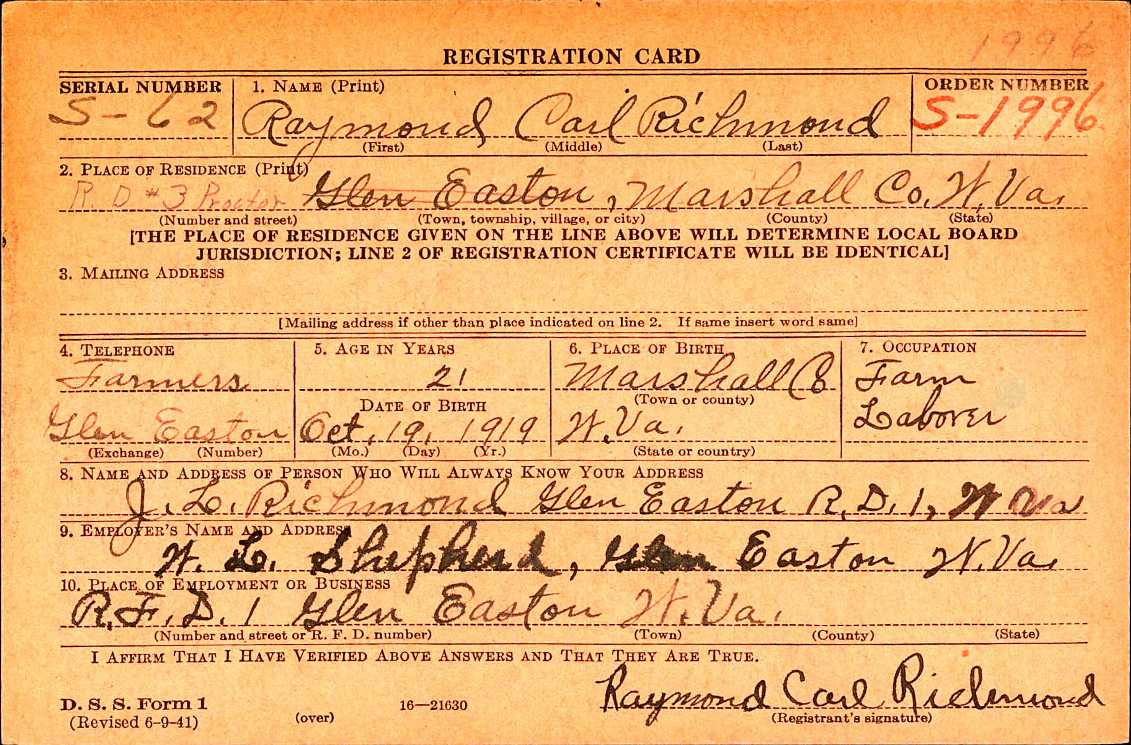 1996
REGISTRATION CARD
SERIAL NUMBER 1. NAME (Print) ORDER NUMBER
S-62 Raymond Carl Richmond S-1996
(First) (Middle) (Last)
2. PLACE OF RESIDENCE (Print)
R.D #3 Proctor Glen Easton, Marshall Co. W.Va.
(Number and street) (Town, township, village, or city) (County) (State)
[THE PLACE OF RESIDENCE GIVEN ON THE LINE ABOVE WILL DETERMINE LOCAL BOARD
JURISDICTION; LINE 2 OF REGISTRATION CERTIFICATE WILL BE IDENTICAL]
3. MAILING ADDRESS
[Mailing address if other than place indicated on line 2. If same insert word same]
4. TELEPHONE 5. AGE IN YEARS 6. PLACE OF BIRTH 7. OCCUPATION
Farmers 21 Marshall Co Farm
DATE OF BIRTH (Town or county)
Glen Easton Oct. 19, 1919 W.Va. Laborer
(Exchange) (Number) (Mo.) (Day) (Yr.) (State or country)
8. NAME AND ADDRESS OF PERSON WHO WILL ALWAYS KNOW YOUR ADDRESS
J. L. Richmond Glen Easton R.D. 1, W Va
9. EMPLOYER'S NAME AND ADDRESS
W. L. Shepherd, Glen Easton W.Va.
10. PLACE OF EMPLOYMENT OR BUSINESS
R.F.D. 1 Glen Easton W.Va.
(Number and street or R. F. D. number) (Town) (County) (State)
I AFFIRM THAT I HAVE VERIFIED ABOVE ANSWERS AND THAT THEY ARE TRUE.
Raymond Carl Richmond
D. S. S. Form 1 16—21630
(Revised 6-9-41) (over) (Registrant's signature)